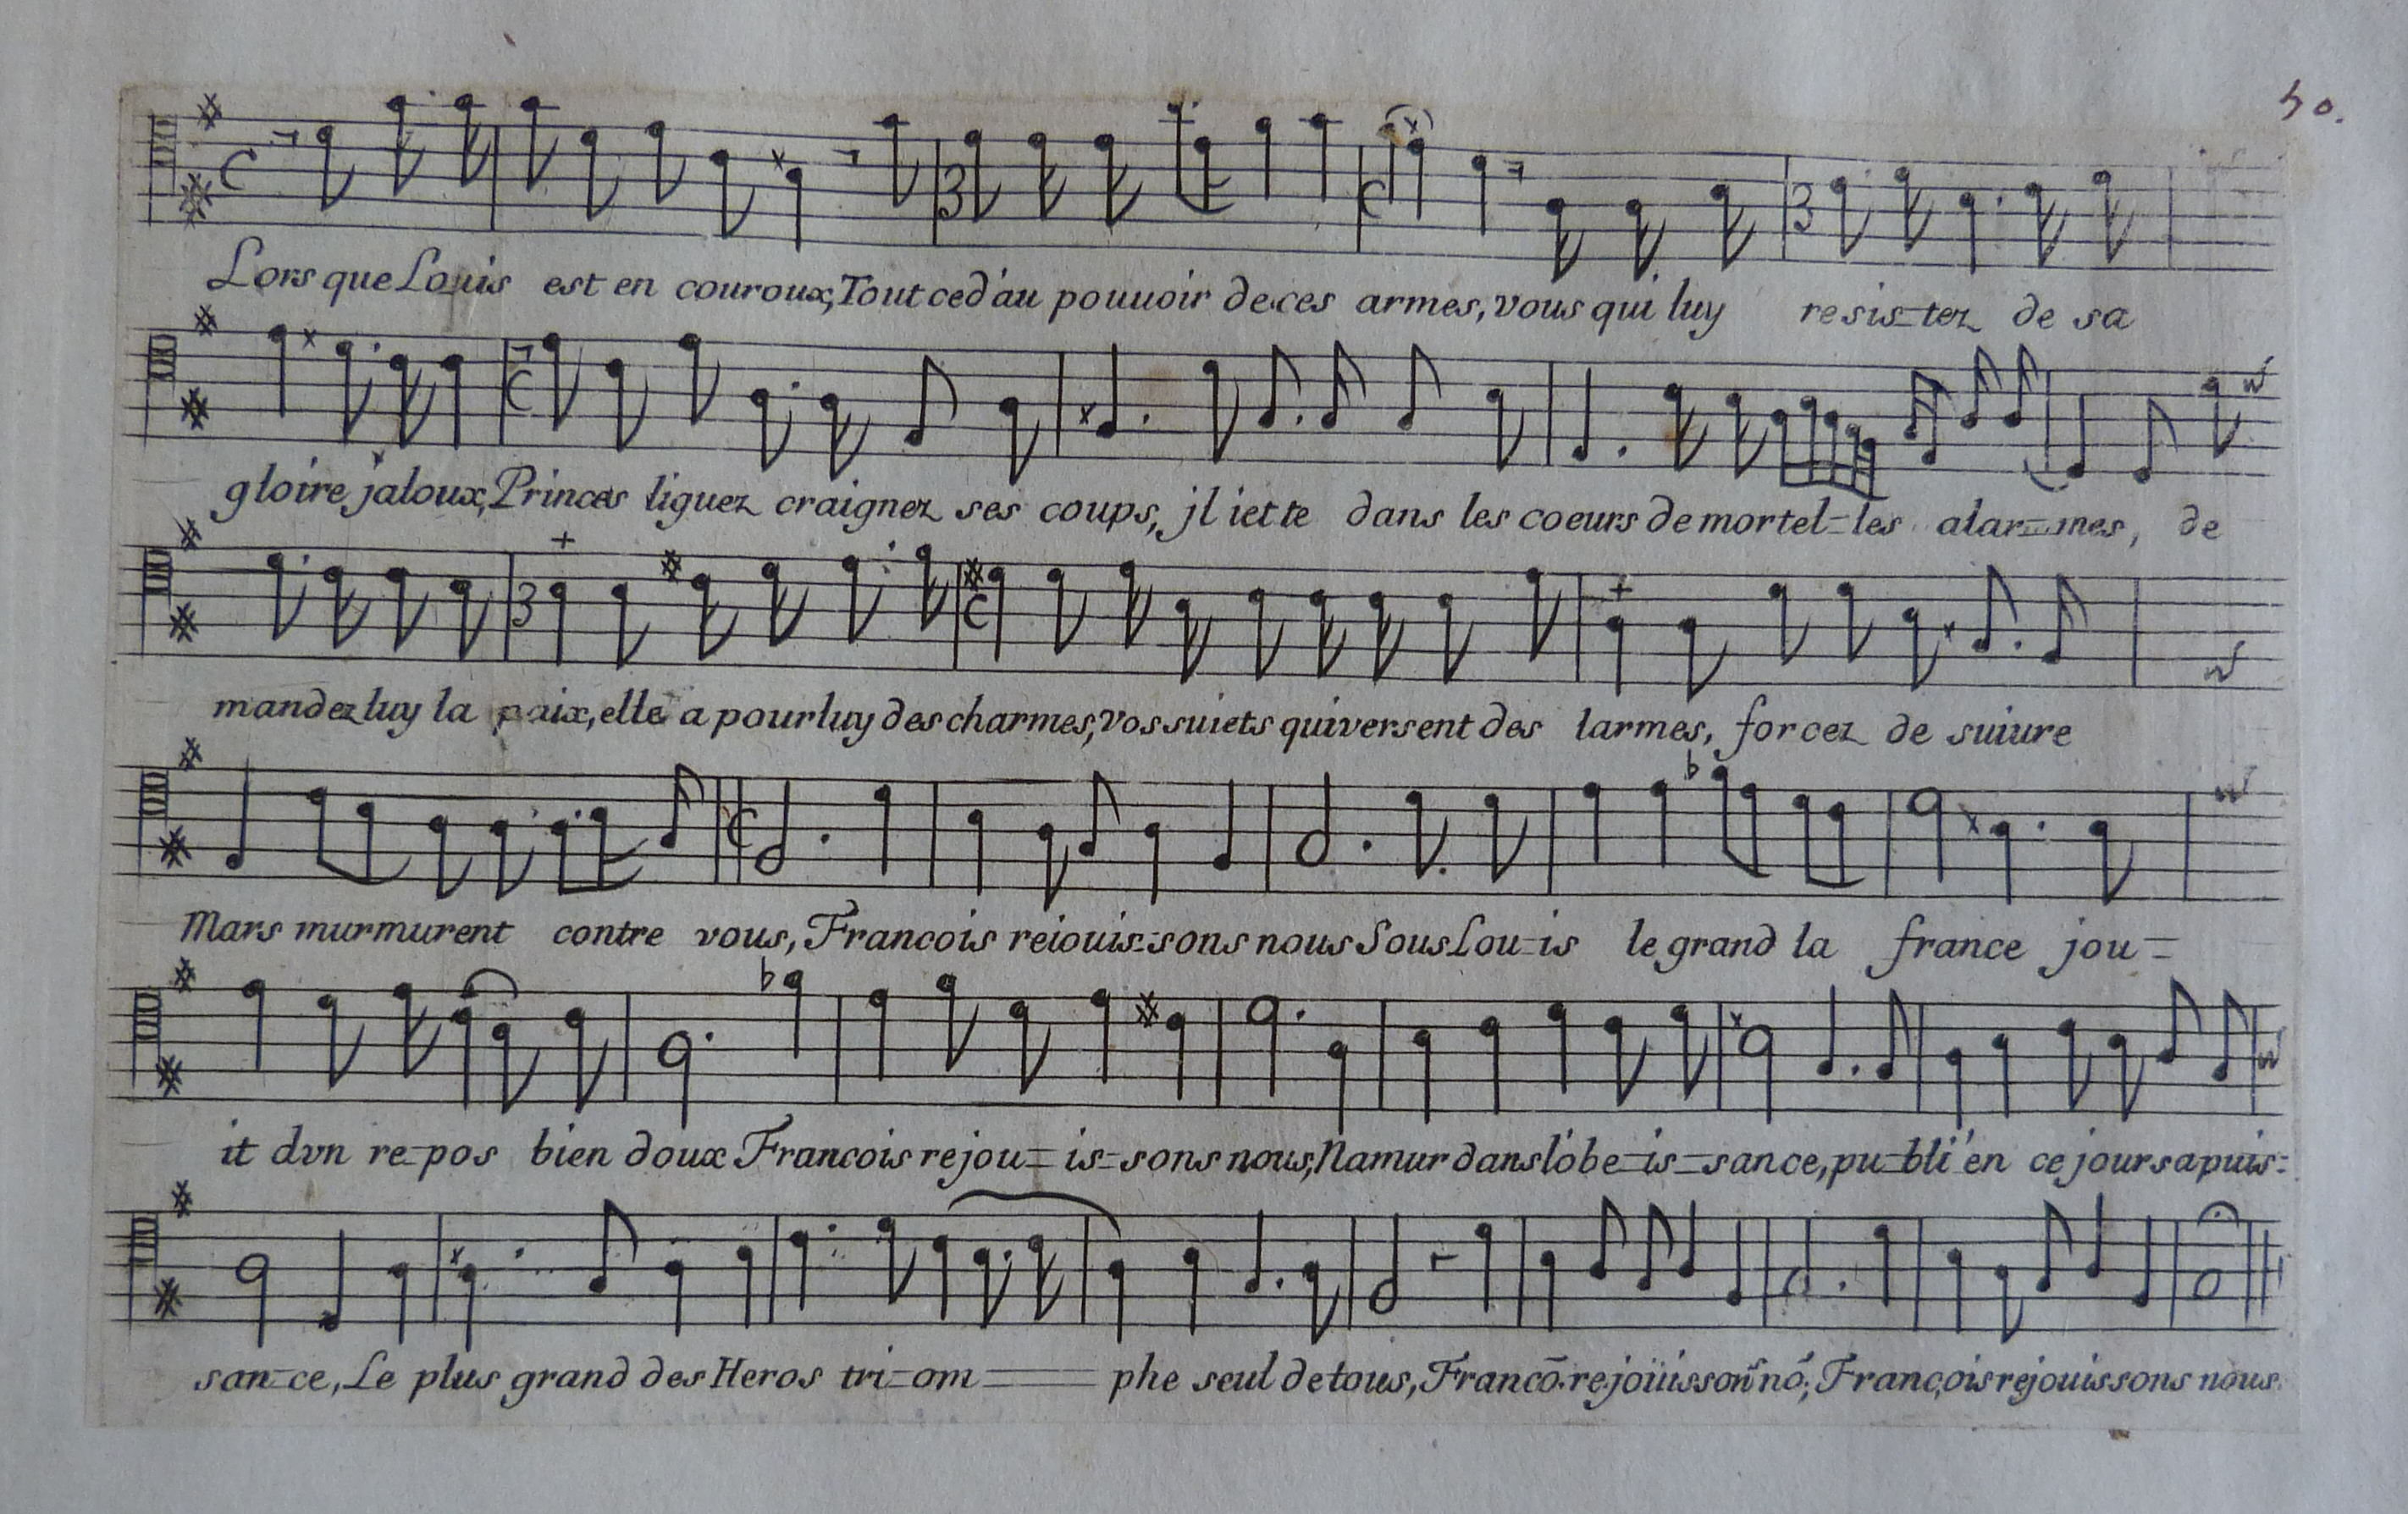 50.
Lors que Louis est en couroux, Tout ced'au pouuoir de ces armes, vous qui luy resis=tez de sa
gloire jaloux, Princes liguez craignez ses coups, jl iette dans les coeurs de mortel=les alar=mes, de
mandez luy la paix, elle a pour luy des charmes, vos suiets qui versent des larmes, forcez de suiure
Mars murmurent contre vous, Francois reiouis=sons nous Sous Lou=is le grand la france jou=
it dvn re=pos bien doux Francois rejou=is=sons nous, Namur dans l'obe=is=sance, pu=bli'en ce jour sa puis=
san=ce, Le plus grand des Heros tri=om= phe seul de tous, Francō. rejoüissoñ nō, François rejouissons nous.